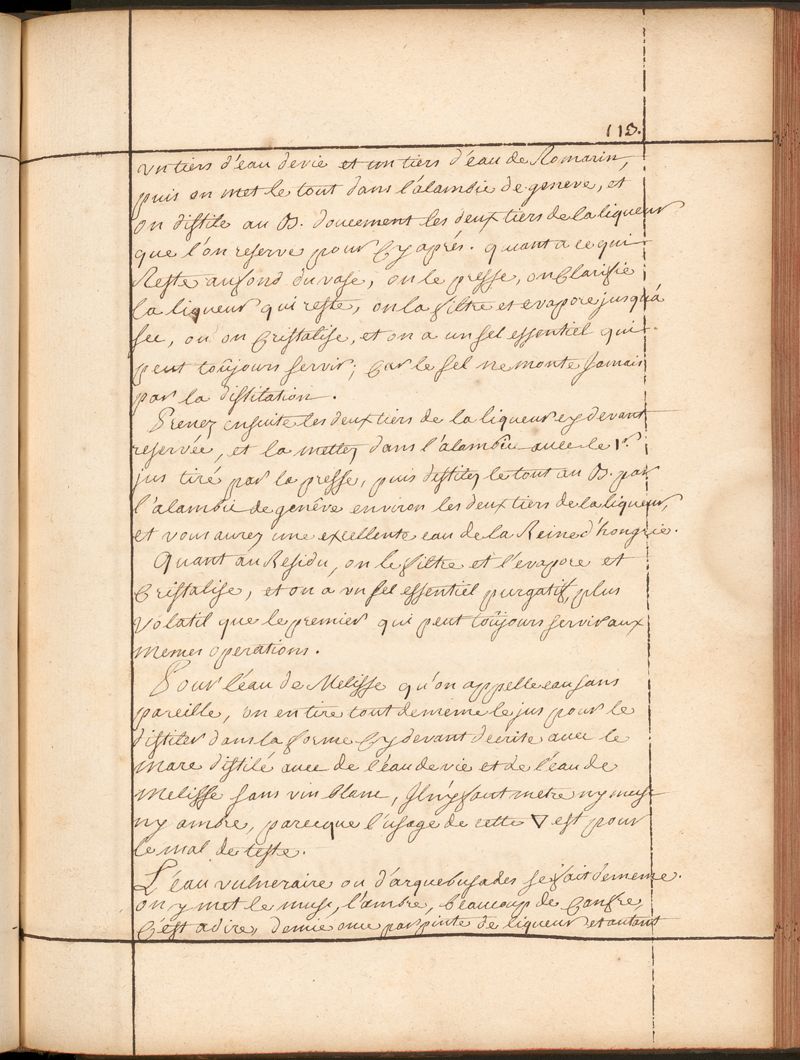 113.
Vn tiers d'eau de vie et un tiers d'eau de Romarin,
puis on met le tout dans l'alambic de geneve, et
on distile au B. doucement les deux tiers de la liqueur
que l'on reserve pour Cy aprés. quant a ce qui
Reste au fond du vase, on le presse, on Clarifie
la liqueur qui reste, on la filtre et evapore jusqu'a
sec, ou on Cristalise, et on a un sel essentiel qui
peut toûjours servir; Car le sel ne monte Jamais
par la distilation.
Prenez ensuite les deux tiers de la liqueur cy devant
reservée, et la mettez dans l'alambic avec le 1.r
jus tiré par la presse, puis distilez le tout au B. par
l'alambic de genêve environ les deux tiers de la liqueur,
et vous aurez une excellente eau de la Reine d'hongrie.
Quant au Residu, on le filtre et l'evapore et
Cristalise, et on a vn sel essentiel purgatif, plus
Volatil que le premier qui peut toûjours servir aux
memes operations.
Pour l'éau de Melisse qu'on appelle eau sans
pareille, on en tire tout de meme le jus pour le
distiler dans la forme Cy devant decrite avec le
marc distilé avec de l'éau de vie et de l'éau de
Melisse sans vin blanc, Il n'y faut metre ny musc
ny ambre, parceque l'usage de cette ▽ est pour
le mal de teste.
L'éau vulneraire ou d'arquebusades se fait de meme.
on y met le musc, l'ambre, beaucoup de Canfre,
C'est a dire, demie once par pinte de liqueur et autant